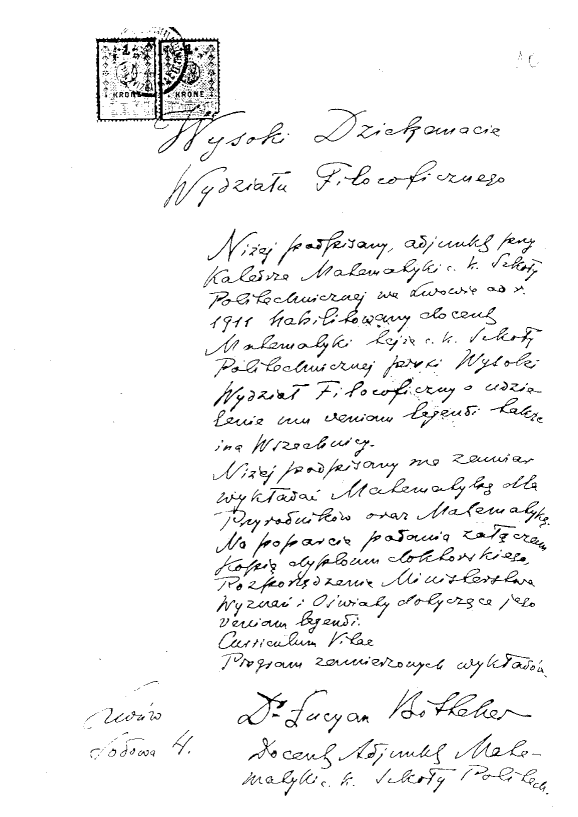 1 1
KRONE KRONE
Wysoki Dziekanacie
Wydziału Filocoficznego
Niżej podpisany, adjunkt przy
Katedrze Matematyki c. k. Szkoły
Politechnicznej we Lwowie od r.
1911 habilitowany docent
Matematyki tejże c. k. Szkoły
Politechnicznej prosi Wysoki
Wydział Filocoficzny o udzie-
lenie mu veniam legendi także
ina Wszechnicy.
Niżej podpisany ma zamiar
wykładać Matematykę dla
Przyrodników oraz Matematykę
Na poparcie podania załączam
Kopię dyplomu doktorskiego,
Rozporządzenie Ministerstwa
Wyznań i Oświaty dotyczące jego
veniam legendi.
Curriculum Vitae
Program zamierzonych wykładów.
Lwów
Sodowa 4.
Dr Lucyan Böttcher
Docent Adjunkt Mate-
matyki c. k. Szkoły Politech.